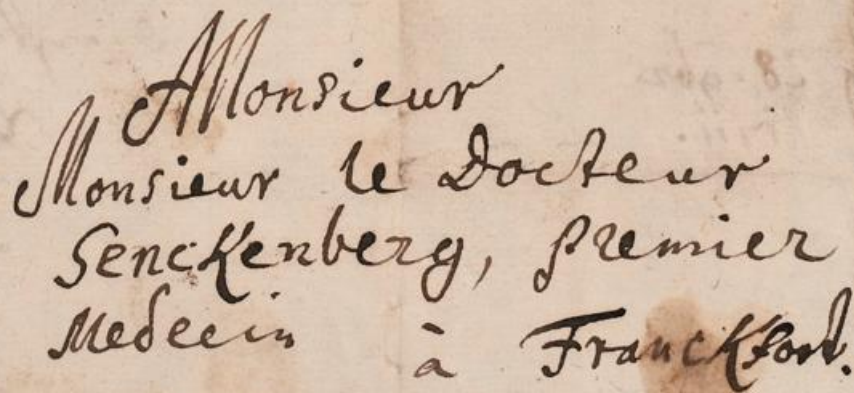 A Monsieur
Monsieur le Docteur
Senckenberg, premier
Medecin à Franckfort.